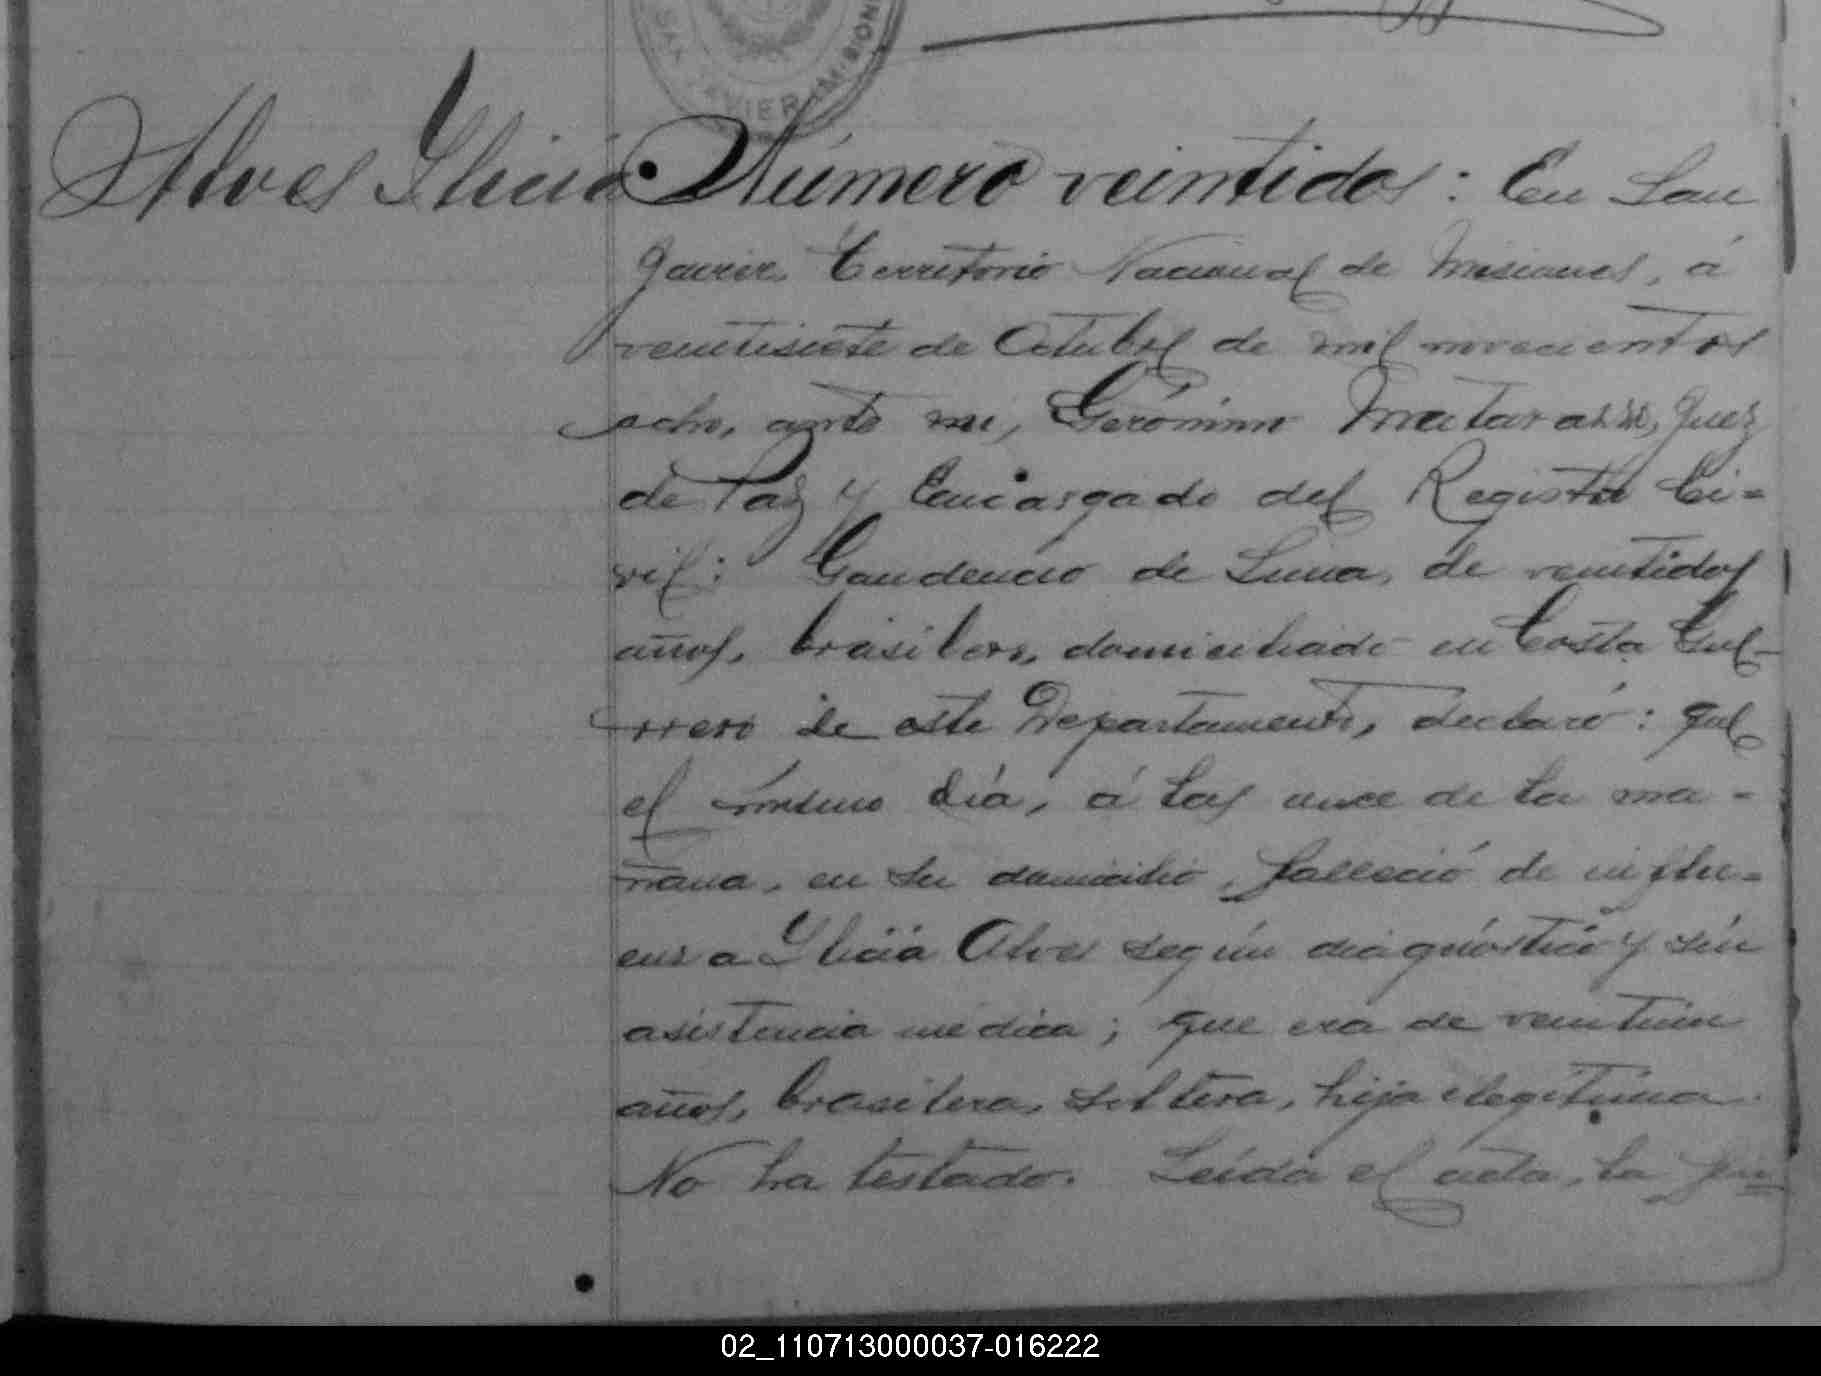 SAN JAVIER (MISIONES
Alves Ylicia Número veintidos: En San
Javier, Territorio Nacional de Misiones, á
veintisiete de Octubre de mil novecientos
ocho, ante mi, Gerónimo Matarasso, Juez
de Paz y Encargado del Registro Ci=
vil: Gaudencio de Lima, de veintidos
años, brasilero, domiciliado en Costa
de este Departamento, declaró: que
el mismo día, á las once de la ma-
ñana, en su domicilio, falleció de influ=
enza Ylicia Alves según diagnóstico y sin
asistencia médica; que era de veintiun
años, brasilera, soltera, hija ilegitima.
No ha testado. Leída el acta, la
02_110713000037-016222